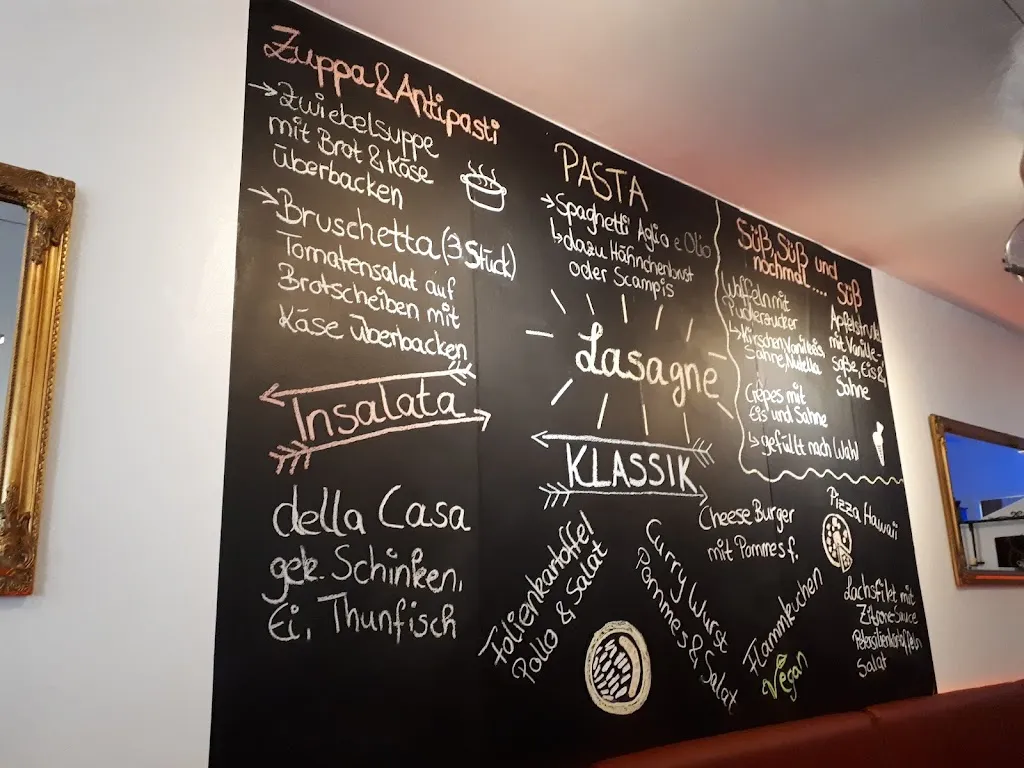 Zuppa & Antipasti
→ Zwiebelsuppe
mit Brot & Käse
überbacken
→ Bruschetta (3 Stück)
Tomatensalat auf
Brotscheiben mit
Käse überbacken
Insalata
della Casa
gek. Schinken,
Ei, Thunfisch
PASTA
→ Spaghetti Aglio e Olio
↳ dazu Hähnchenbrust
oder Scampis
Lasagne
KLASSIK
Folienkartoffel
Pollo & Salat
Curry Wurst
Pommes & Salat
Cheese Burger
mit Pommes f.
Flammkuchen
Vegan
Pizza Hawaii
Lachsfilet mit
Zitronesauce
Petersilienkartoffeln
Salat
Süß, Süß und
nochmal.... Süß
Waffeln mit
Puderzucker
↳ Kirschen, Vanilleeis
Sahne, Nutella
Crêpes mit
Eis und Sahne
↳ gefüllt nach Wahl
Apfelstrudel
mit Vanille-
soße, Eis &
Sahne